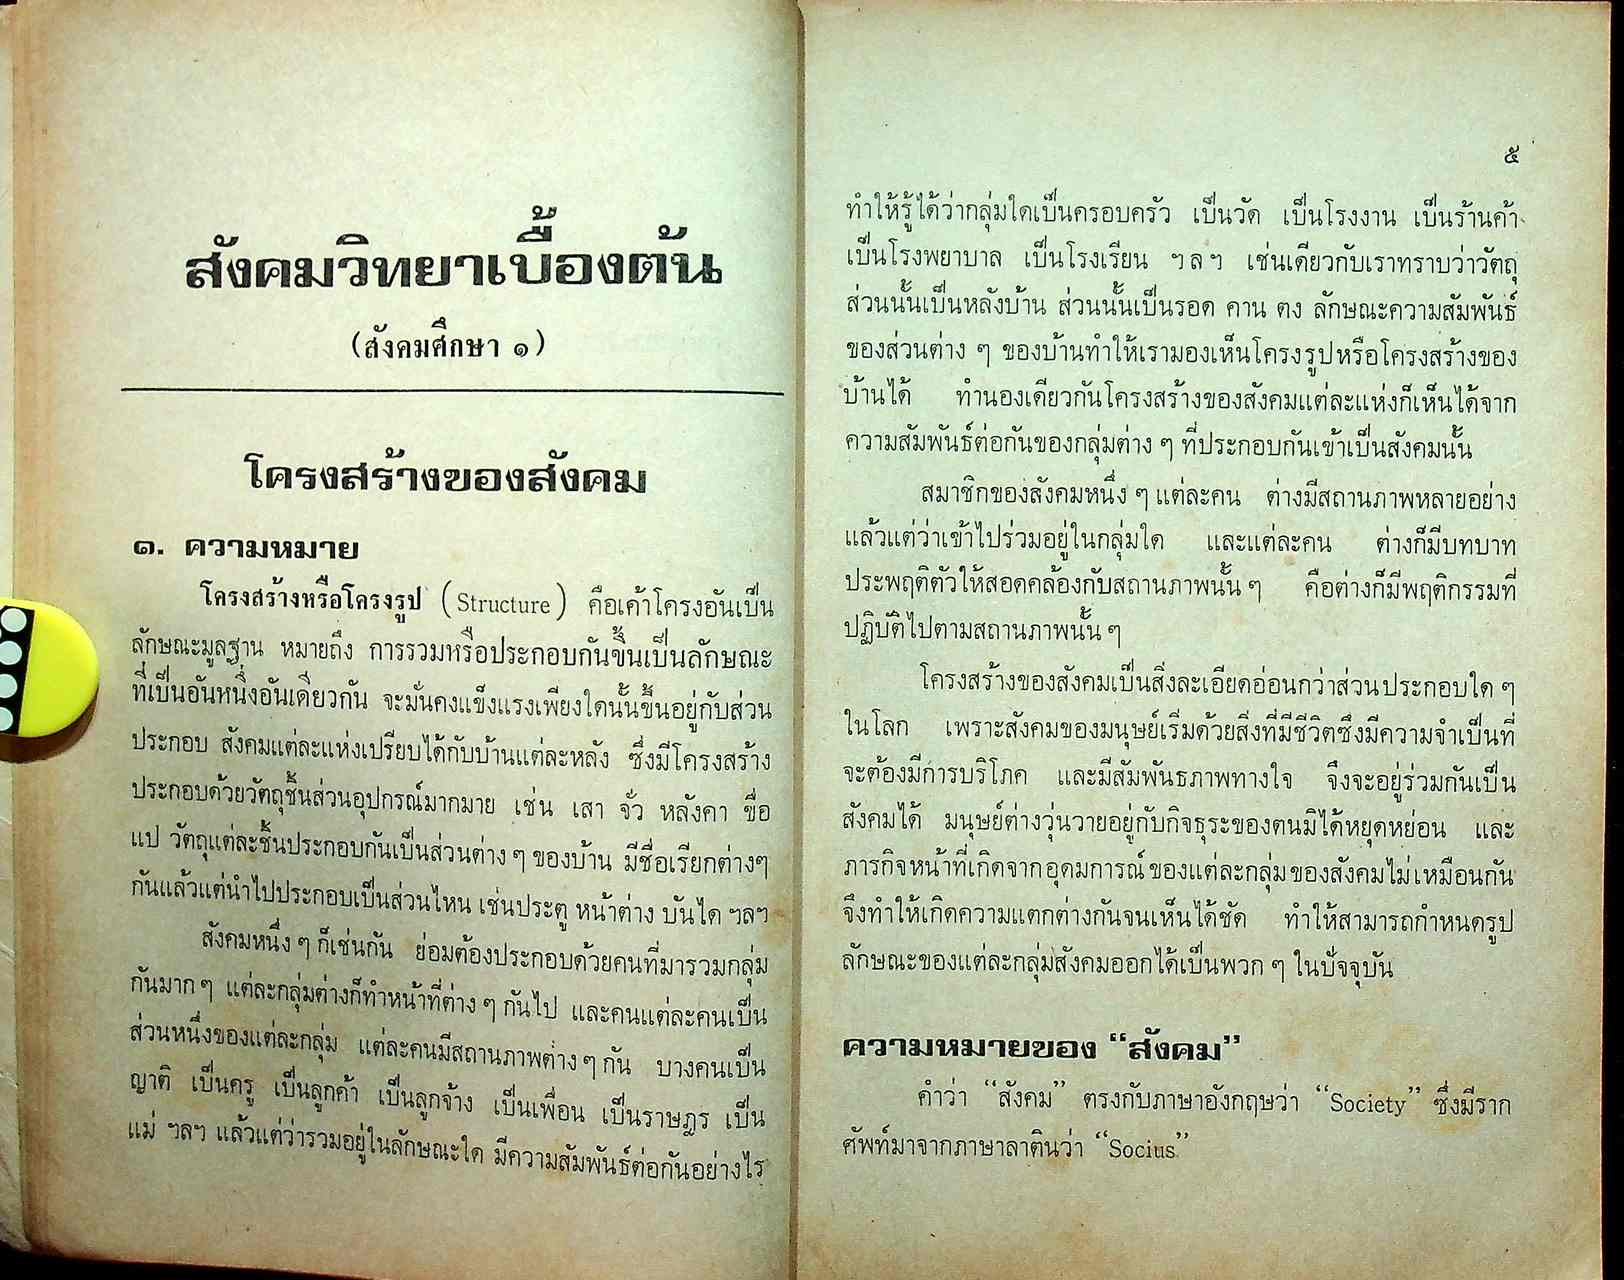 สังคมวิทยาเบื้องต้น
(สังคมศึกษา ๑)
โครงสร้างของสังคม
๑. ความหมาย
โครงสร้างหรือโครงรูป (Structure) คือเค้าโครงอันเป็น
ลักษณะมูลฐาน หมายถึง การรวมหรือประกอบกันขึ้นเป็นลักษณะ
ที่เป็นอันหนึ่งอันเดียวกัน จะมั่นคงแข็งแรงเพียงใดนั้นขึ้นอยู่กับส่วน
ประกอบ สังคมแต่ละแห่งเปรียบได้กับบ้านแต่ละหลัง ซึ่งมีโครงสร้าง
ประกอบด้วยวัตถุชิ้นส่วนอุปกรณ์มากมาย เช่น เสา จั่ว หลังคา ขื่อ
แป วัตถุแต่ละชิ้นประกอบกันเป็นส่วนต่าง ๆ ของบ้าน มีชื่อเรียกต่างๆ
กันแล้วแต่นำไปประกอบเป็นส่วนไหน เช่นประตู หน้าต่าง บันได ฯลฯ
สังคมหนึ่ง ๆ ก็เช่นกัน ย่อมต้องประกอบด้วยคนที่มารวมกลุ่ม
กันมาก ๆ แต่ละกลุ่มต่างก็ทำหน้าที่ต่าง ๆ กันไป และคนแต่ละคนเป็น
ส่วนหนึ่งของแต่ละกลุ่ม แต่ละคนมีสถานภาพต่าง ๆ กัน บางคนเป็น
ญาติ เป็นครู เป็นลูกค้า เป็นลูกจ้าง เป็นเพื่อน เป็นราษฎร เป็น
แม่ ฯลฯ แล้วแต่ว่ารวมอยู่ในลักษณะใด มีความสัมพันธ์ต่อกันอย่างไร
๕
ทำให้รู้ได้ว่ากลุ่มใดเป็นครอบครัว เป็นวัด เป็นโรงงาน เป็นร้านค้า
เป็นโรงพยาบาล เป็นโรงเรียน ฯลฯ เช่นเดียวกับเราทราบว่าวัตถุ
ส่วนนั้นเป็นหลังบ้าน ส่วนนั้นเป็นรอด คาน ตง ลักษณะความสัมพันธ์
ของส่วนต่าง ๆ ของบ้านทำให้เรามองเห็นโครงรูปหรือโครงสร้างของ
บ้านได้ ทำนองเดียวกันโครงสร้างของสังคมแต่ละแห่งก็เห็นได้จาก
ความสัมพันธ์ต่อกันของกลุ่มต่าง ๆ ที่ประกอบกันเข้าเป็นสังคมนั้น
สมาชิกของสังคมหนึ่ง ๆ แต่ละคน ต่างมีสถานภาพหลายอย่าง
แล้วแต่ว่าเข้าไปร่วมอยู่ในกลุ่มใด และแต่ละคน ต่างก็มีบทบาท
ประพฤติตัวให้สอดคล้องกับสถานภาพนั้น ๆ คือต่างก็มีพฤติกรรมที่
ปฏิบัติไปตามสถานภาพนั้น ๆ
โครงสร้างของสังคมเป็นสิ่งละเอียดอ่อนกว่าส่วนประกอบใด ๆ
ในโลก เพราะสังคมของมนุษย์เริ่มด้วยสิ่งที่มีชีวิตซึ่งมีความจำเป็นที่
จะต้องมีการบริโภค และมีสัมพันธภาพทางใจ จึงจะอยู่ร่วมกันเป็น
สังคมได้ มนุษย์ต่างวุ่นวายอยู่กับกิจธุระของตนมิได้หยุดหย่อน และ
ภารกิจหน้าที่เกิดจากอุดมการณ์ของแต่ละกลุ่มของสังคมไม่เหมือนกัน
จึงทำให้เกิดความแตกต่างกันจนเห็นได้ชัด ทำให้สามารถกำหนดรูป
ลักษณะของแต่ละกลุ่มสังคมออกได้เป็นพวก ๆ ในปัจจุบัน
ความหมายของ “สังคม”
คำว่า “สังคม” ตรงกับภาษาอังกฤษว่า “Society” ซึ่งมีราก
ศัพท์มาจากภาษาลาตินว่า “Socius”